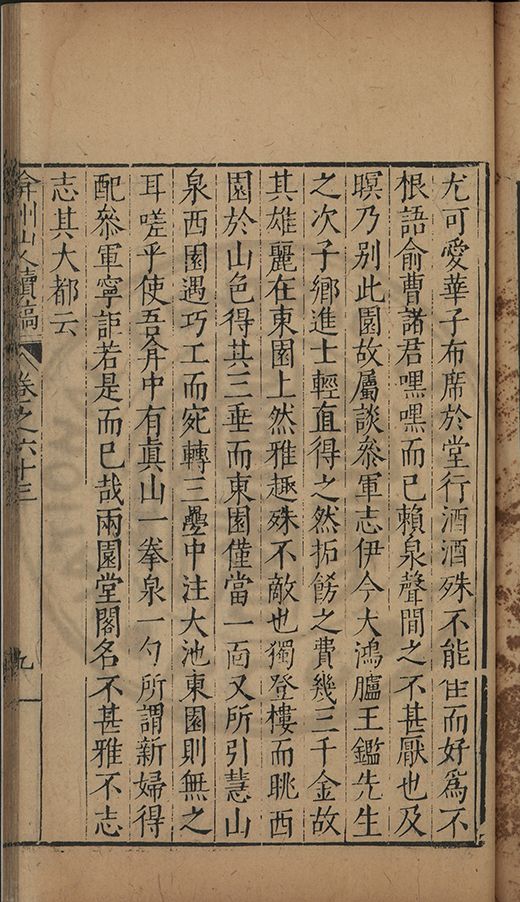 尤可愛華子布席於堂行酒酒殊不能佳而好爲不
根語俞曹諸君嘿嘿而已賴泉聲間之不甚厭也及
暝乃别此園故屬談叅軍志伊今大鴻臚王鑑先生
之次子鄉進士輕直得之然拓餝之費幾三千金故
其雄麗在東園上然雅趣殊不敵也獨登樓而眺西
園於山色得其三垂而東園僅當一面又所引慧山
泉西園遇巧工而宛轉三疊中注大池東園則無之
耳嗟乎使吾弇中有真山一拳泉一勺所謂新婦得
配叅軍寧詎若是而已哉兩園堂閣名不甚雅不志
志其大都云
弇州山人續稿
卷之六十三
九